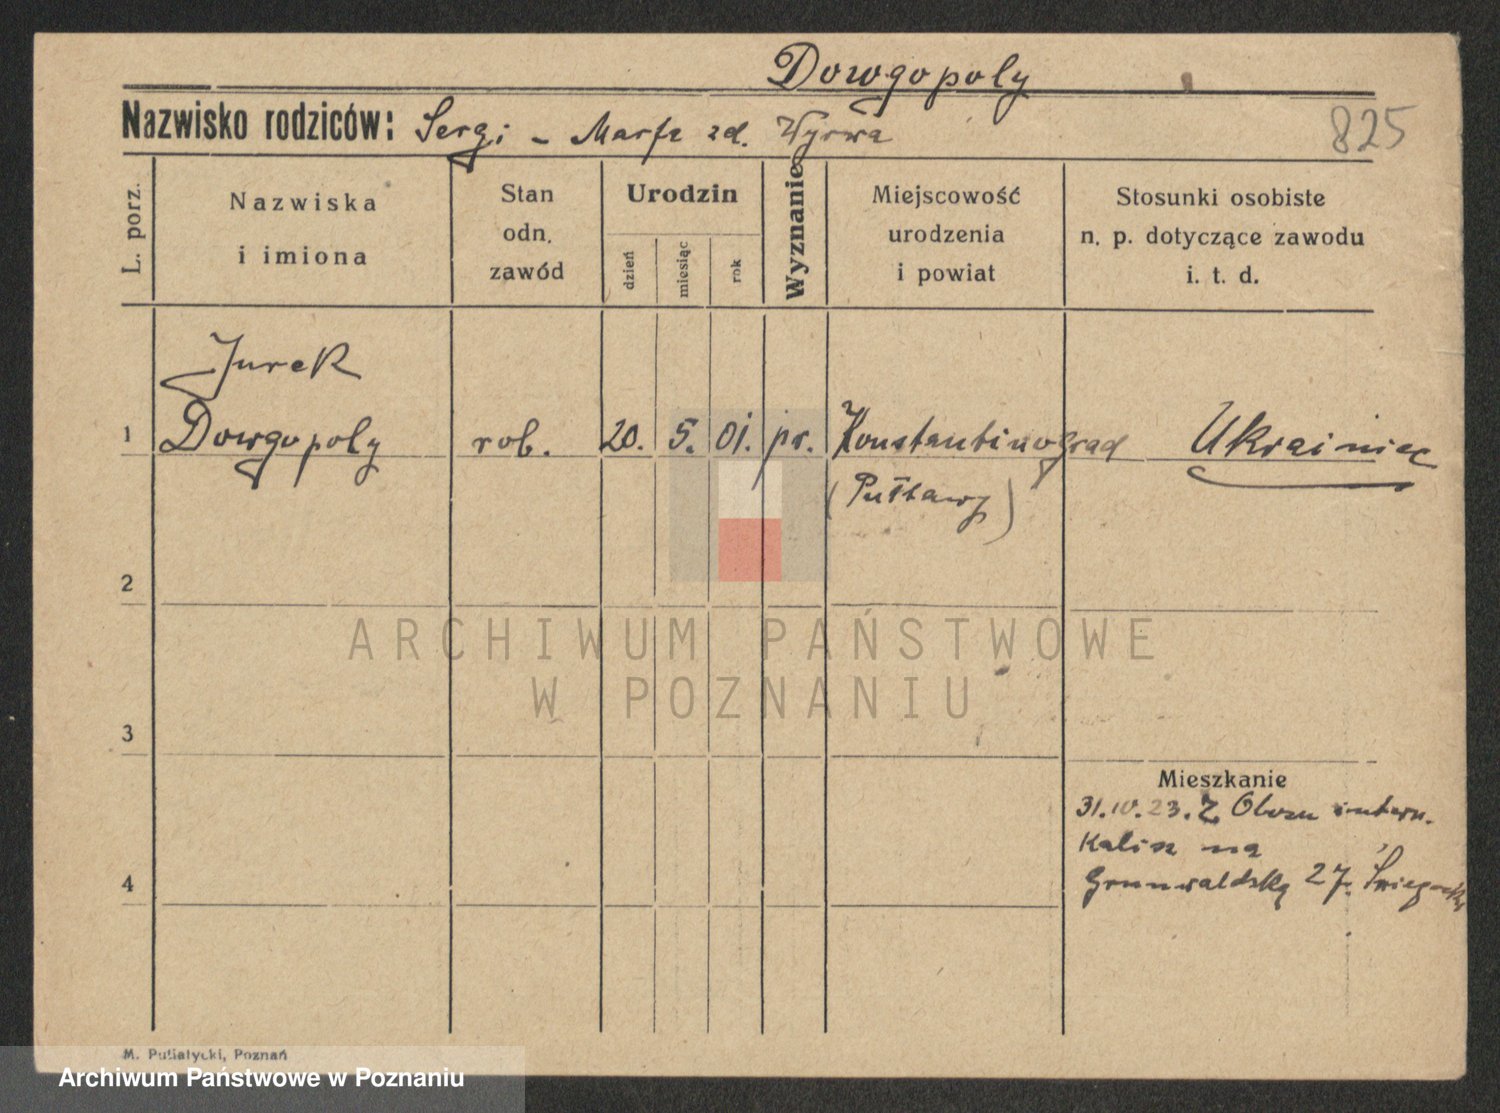 Dowgopoly
Nazwisko rodziców: Sergi - Marfa zd. Wyrwa
825
L. porz.
Nazwiska
i imiona
Stan
odn.
zawód
Urodzin
dzień
miesiąc
rok
Wyznanie
Miejscowość
urodzenia
i powiat
Stosunki osobiste
n. p. dotyczące zawodu
i. t. d.
Jurek
1 Dowgopoly rob. 20. 5. 01. pr. Konstantinograd Ukrainiec
2
ARCHIWUM PAŃSTWOWE
W POZNANIU
3
Mieszkanie
31.10.23. Z Obozu intern.
Kalisz na
4
Grunwaldską 27.
M. Putiatycki, Poznań
Archiwum Państwowe w Poznaniu